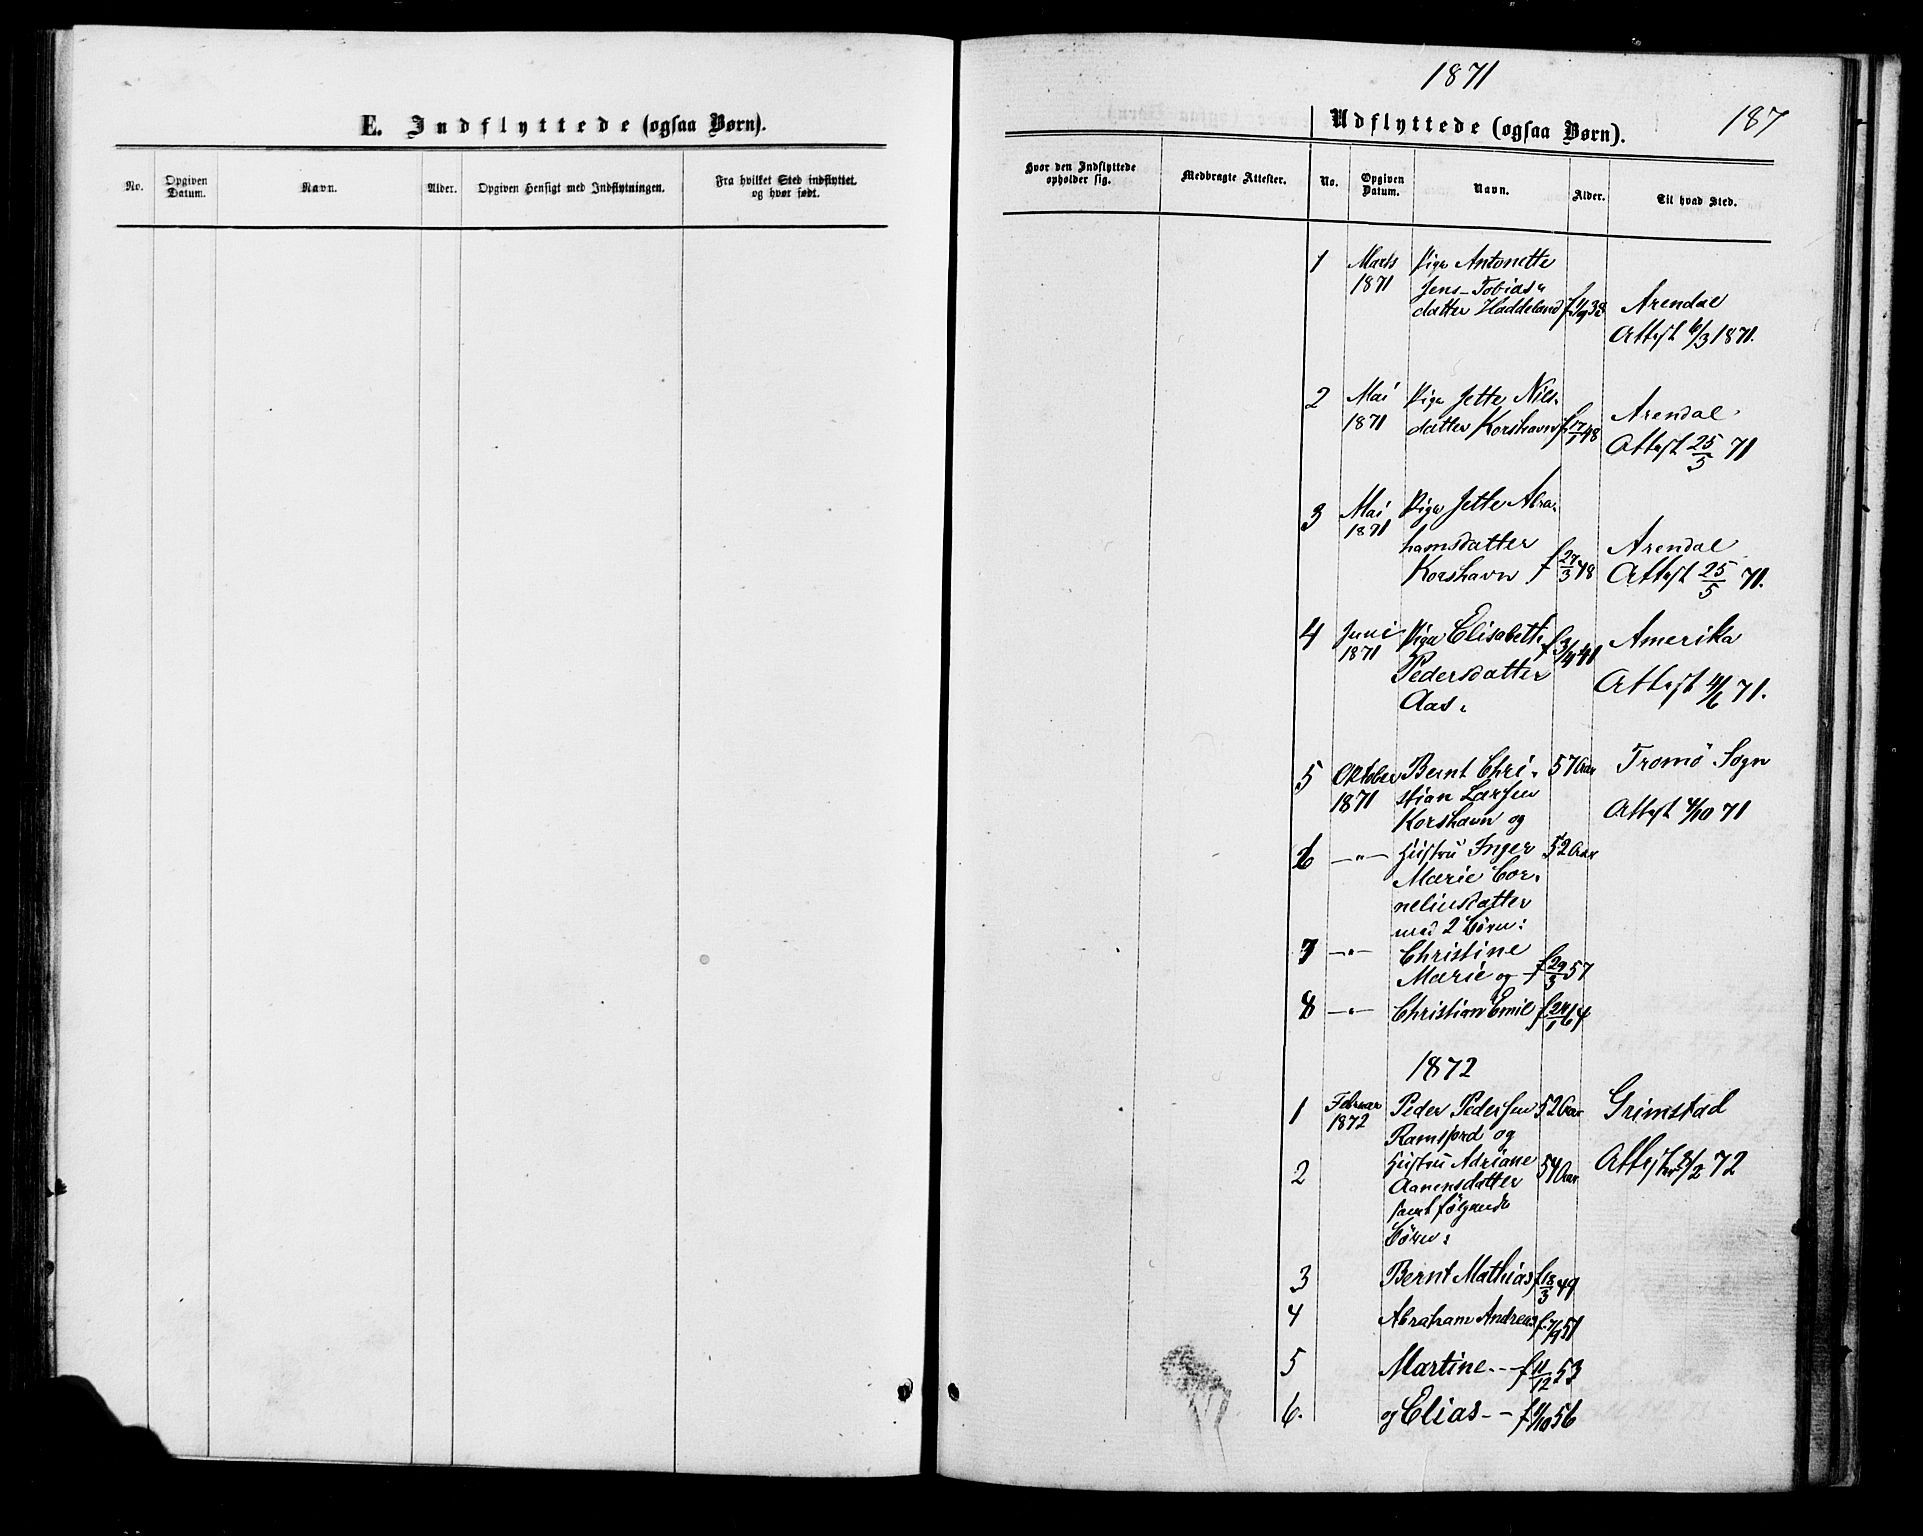 E. Indflyttede (ogsaa Børn).
No.
Opgiven Datum.
Navn.
Alder.
Opgiven Hensigt med Indflytningen.
Fra hvilket Sted indflyttet.
og hvor født.
1871
187
Udflyttede (ogsaa Børn).
Hvor den Indflyttede
opholder sig.
Medbragte Attester.
No.
Opgiven
Datum.
Navn.
Alder.
Til hvad Sted.
1 Marts Pige Antonette
1871 Jens-Tobias"
datter Haddeland 38 Arendal
Attest 6/3 1871.
2 Mai Pige Jette Nils-
1871 datter Korshavn f 17/1 48 Arendal
Attest 25/5 71
3 Mai Pige Jette Abra-
1871 hamsdatter Arendal
Korshavn f 27/3 48 Attest 25/5 71.
4 Juni Pige Elisabeth f 3/4 41 Amerika
1871 Pedersdatter Attest 4/6 71.
Aas.
5 Oktober Bernt Chri- 57 Aar Tromö Sogn
1871 stian Larsen Attest 4/10 71
Korshavn og
6 —"— Hustru Inger 52 Aar
Marie Cor-
neliusdatter
med 2 Börn:
7 —"— Christine
Marie og f 29/3 57
8 —"— Christian Emil f 24/1 64
1872
1 Februar Peder Pedersen 52 Aar Grimstad
1872 Ramsfjord og
2 Hustru Adriane 54 Aar Attest /2 72
Aanensdatter
samt følgende
Börn:
3 Bernt Mathias f 18/3 49
4 Abraham Andreas f 7/9 51
5 Martine -- f 11/12 53
6. og Elias -- f 11/10 56